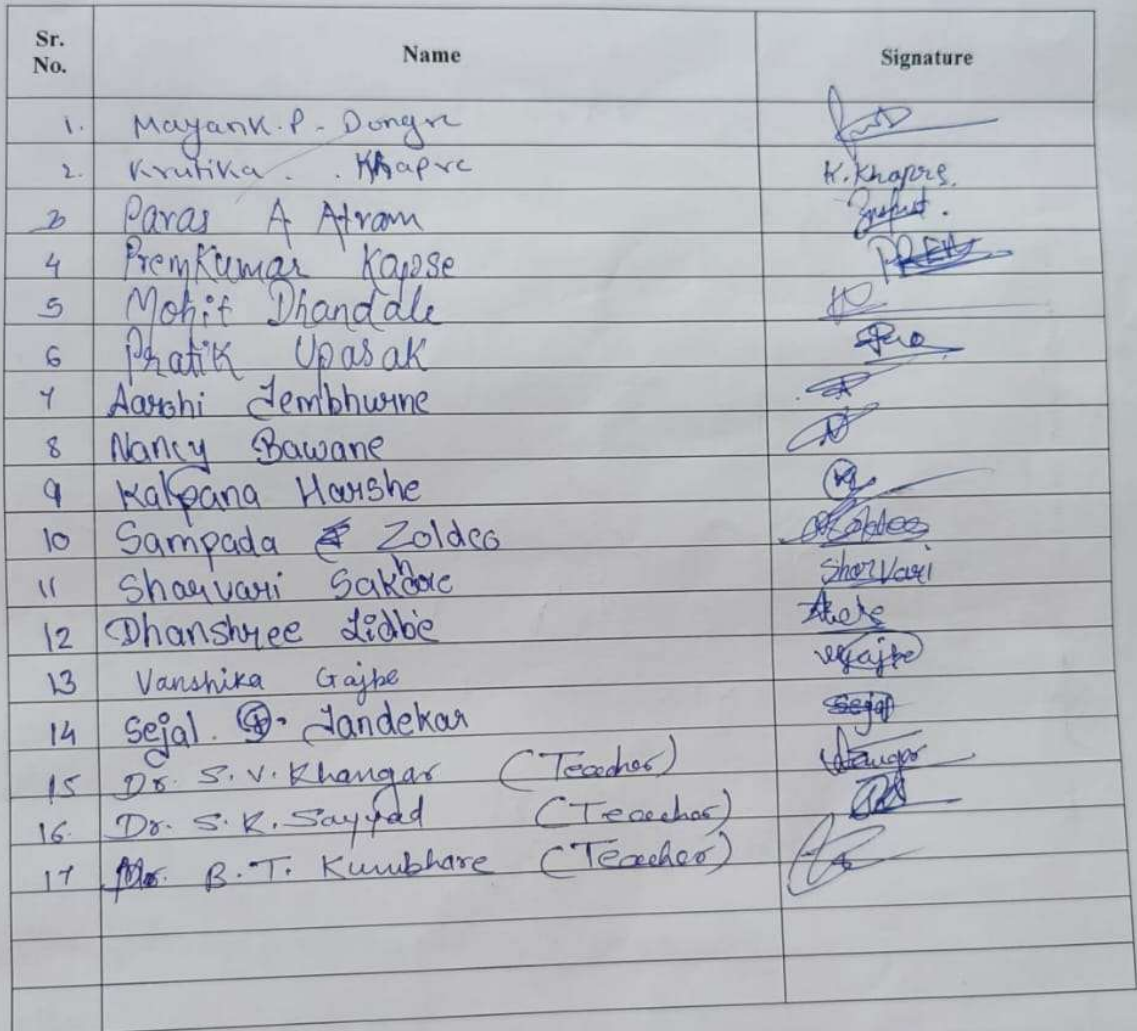 Sr. No. Name Signature
1. Mayank.P. Dongre
2. Krutika . . Khapre K.Khapre.
3 Paras A Atram
4 PremKumar Kapse PREM
5 Mohit Dhandale
6 Pratik Upasak
7 Aarohi Tembhurne
8 Nancy Bawane
9 Kalpana Harshe
10 Sampada Zoldeo Zoldeo
11 Sharvari Sakhare Sharvari
12 Dhanshree Lidbe
13 Vanshika Gajbe VGajbe
14 Sejal. G. Tandekar Sejal
15 Dr. S. V. Khangar (Teacher)
16. Dr. S. K. Sayyad (Teacher)
17 Mr. B. T. Kumbhare (Teacher)